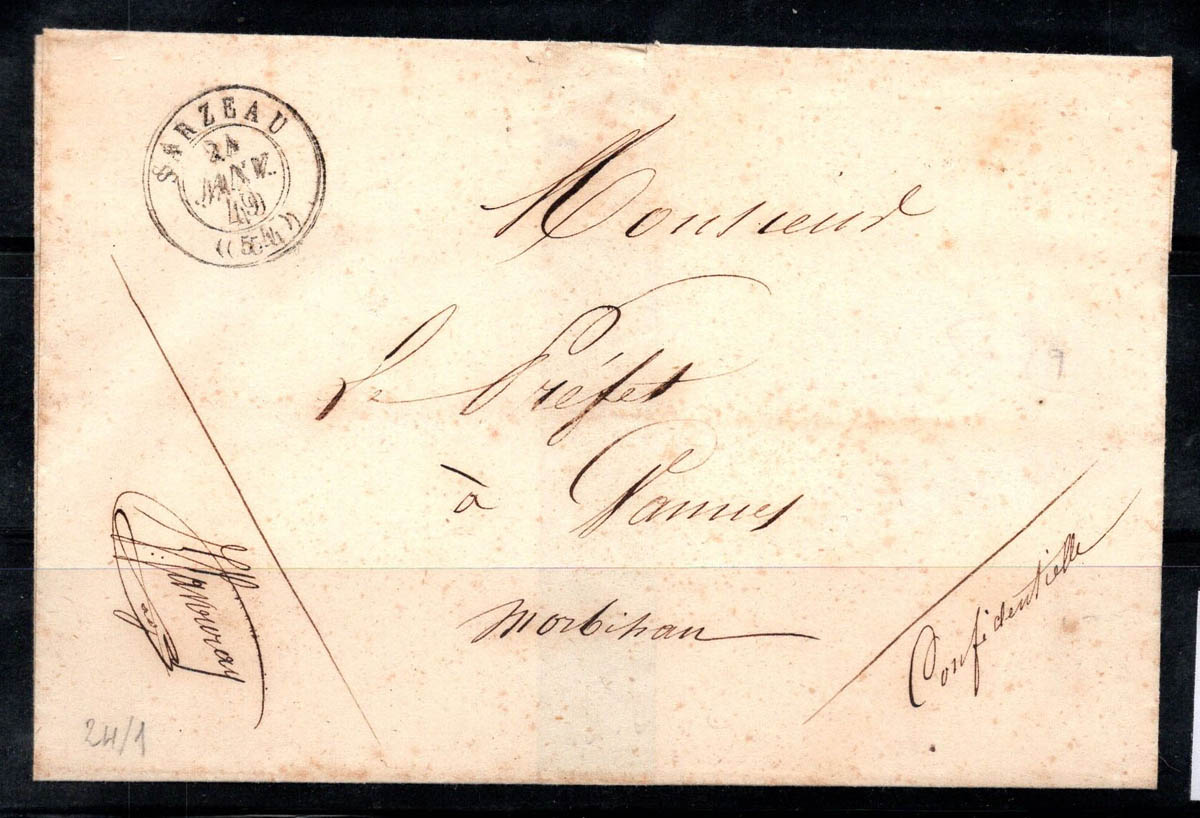 SARZEAU
24
JANV.
49
(54)
Monsieur
Le Préfet
à Vannes
Morbihan
Confidentielle
24/1
7